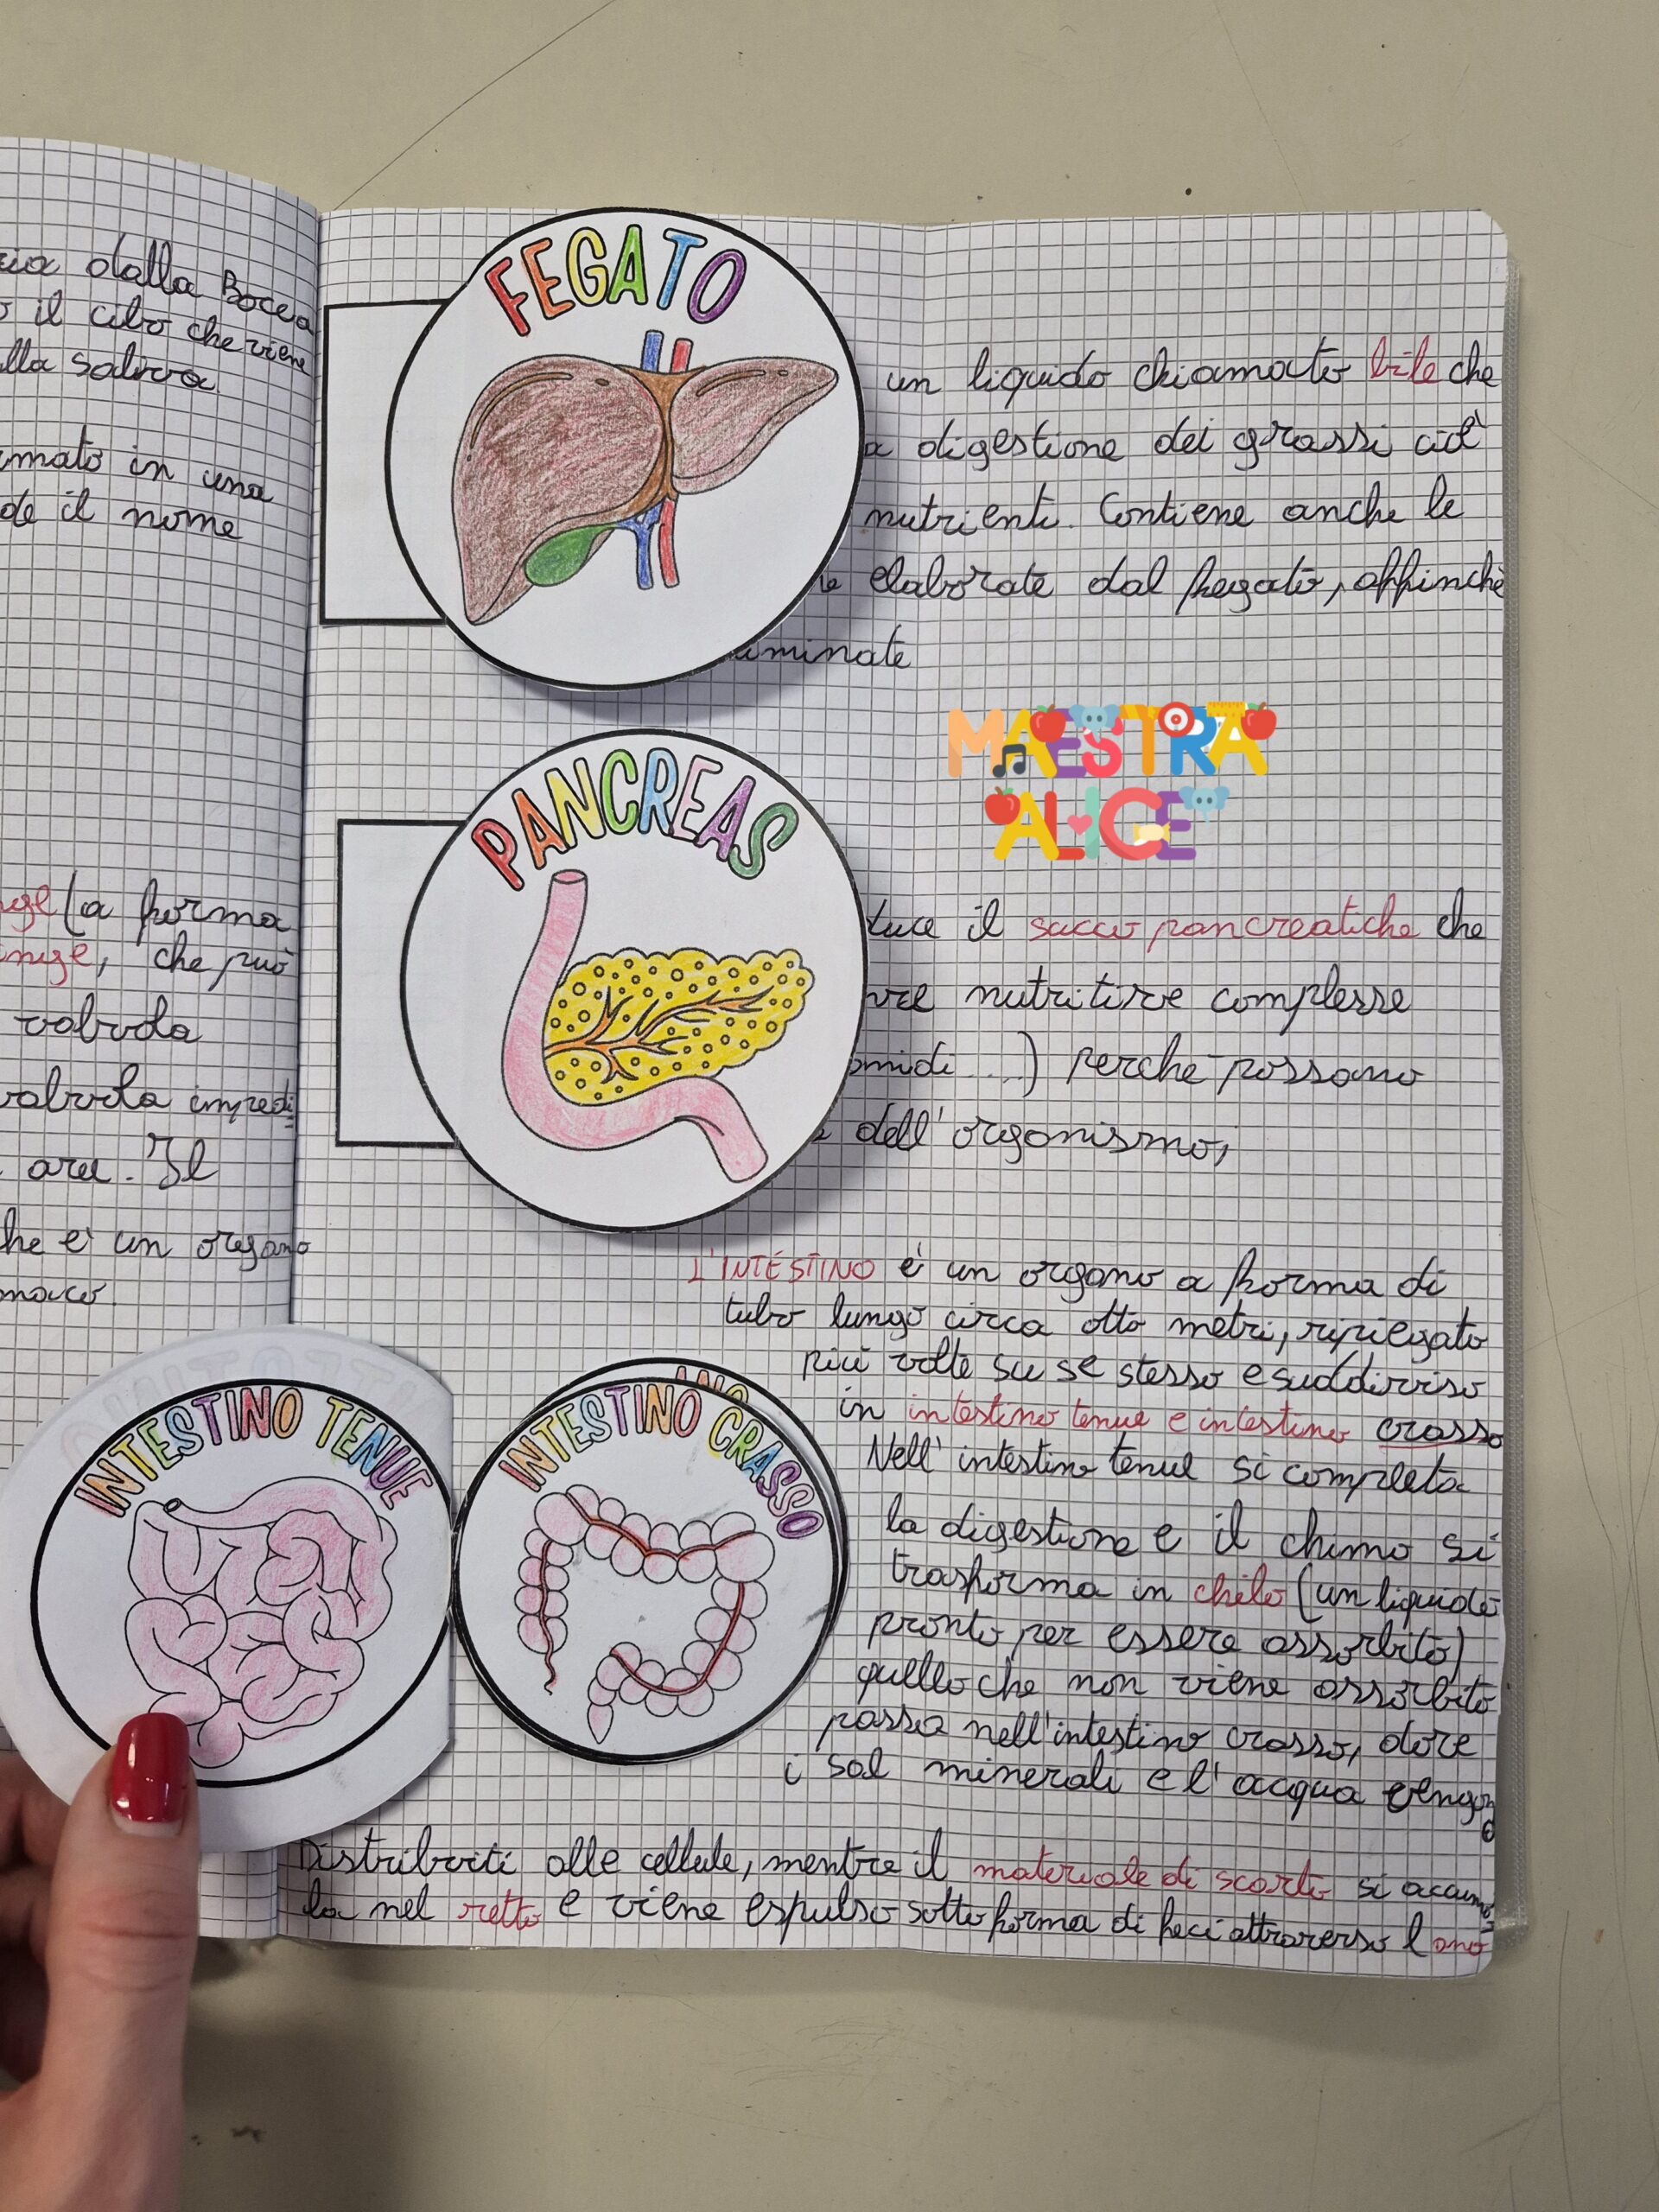 dalla Bocca
il cibo che viene
alla saliva.
in una
il nome
(a forma
che può
valvola
valvola impedi
aru. Il
che è un organo
FEGATO
un liquido chiamato bile che
digestione dei grassi cioè
nutrienti. Contiene anche le
elaborate dal fegato, affinchè
PANCREAS
MAESTRA
ALICE
il succo pancreatiche che
nutritive complesse
....) perchè possano
dell'organismo,
L'INTESTINO è un organo a forma di
tubo lungo circa otto metri, ripiegato
più volte su se stesso e suddiviso
in intestino tenue e intestino crasso
Nell'intestino tenue si completa
la digestione e il chimo si
trasforma in chilo (un liquido
pronto per essere assorbito)
quello che non viene assorbito
passa nell'intestino crasso, dove
i sal minerali e l'acqua vengono
Distribuiti alle cellule, mentre il materiale di scarto si accumu
la nel retto e viene espulso sotto forma di feci attraverso l ano
INTESTINO TENUE
INTESTINO CRASSO